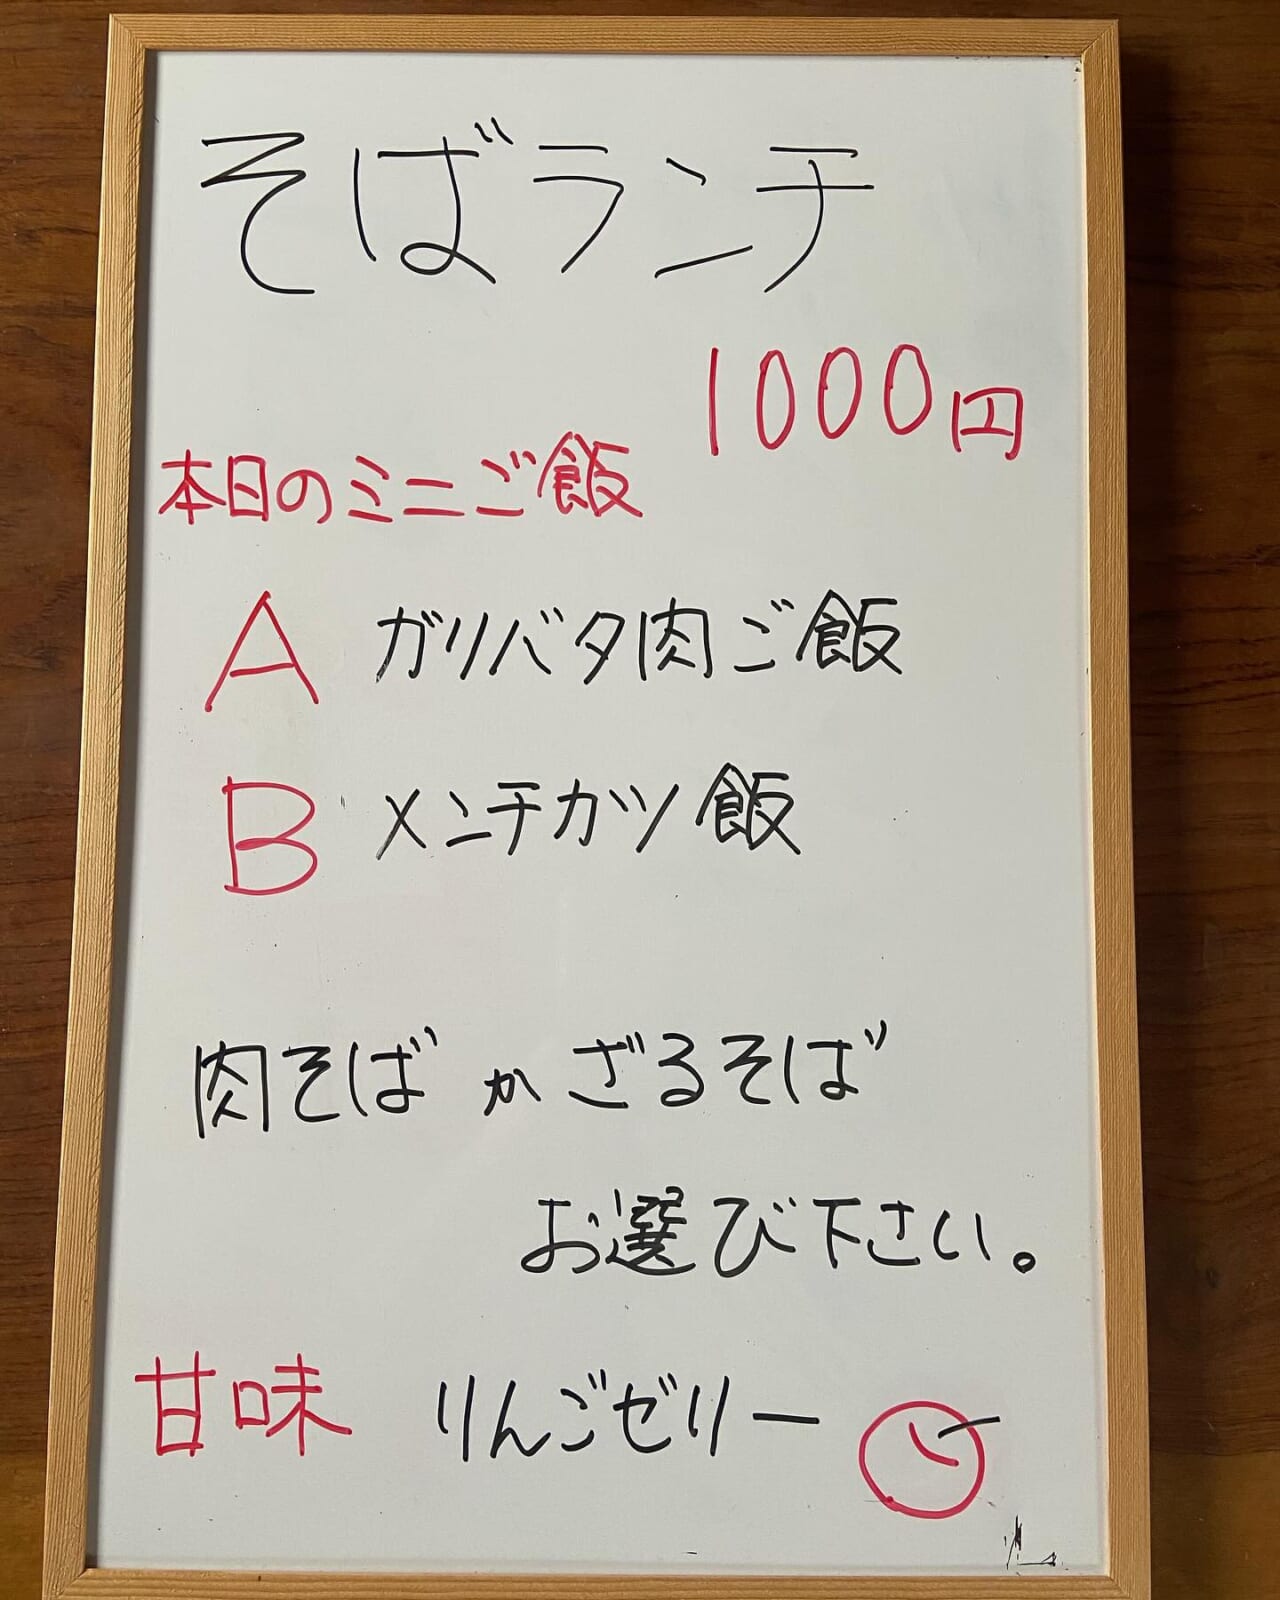 そばランチ
1000円
本日のミニご飯
A ガリバタ肉ご飯
B メンチカツ飯
肉そば か ざるそば
お選び下さい。
甘味 りんごゼリー